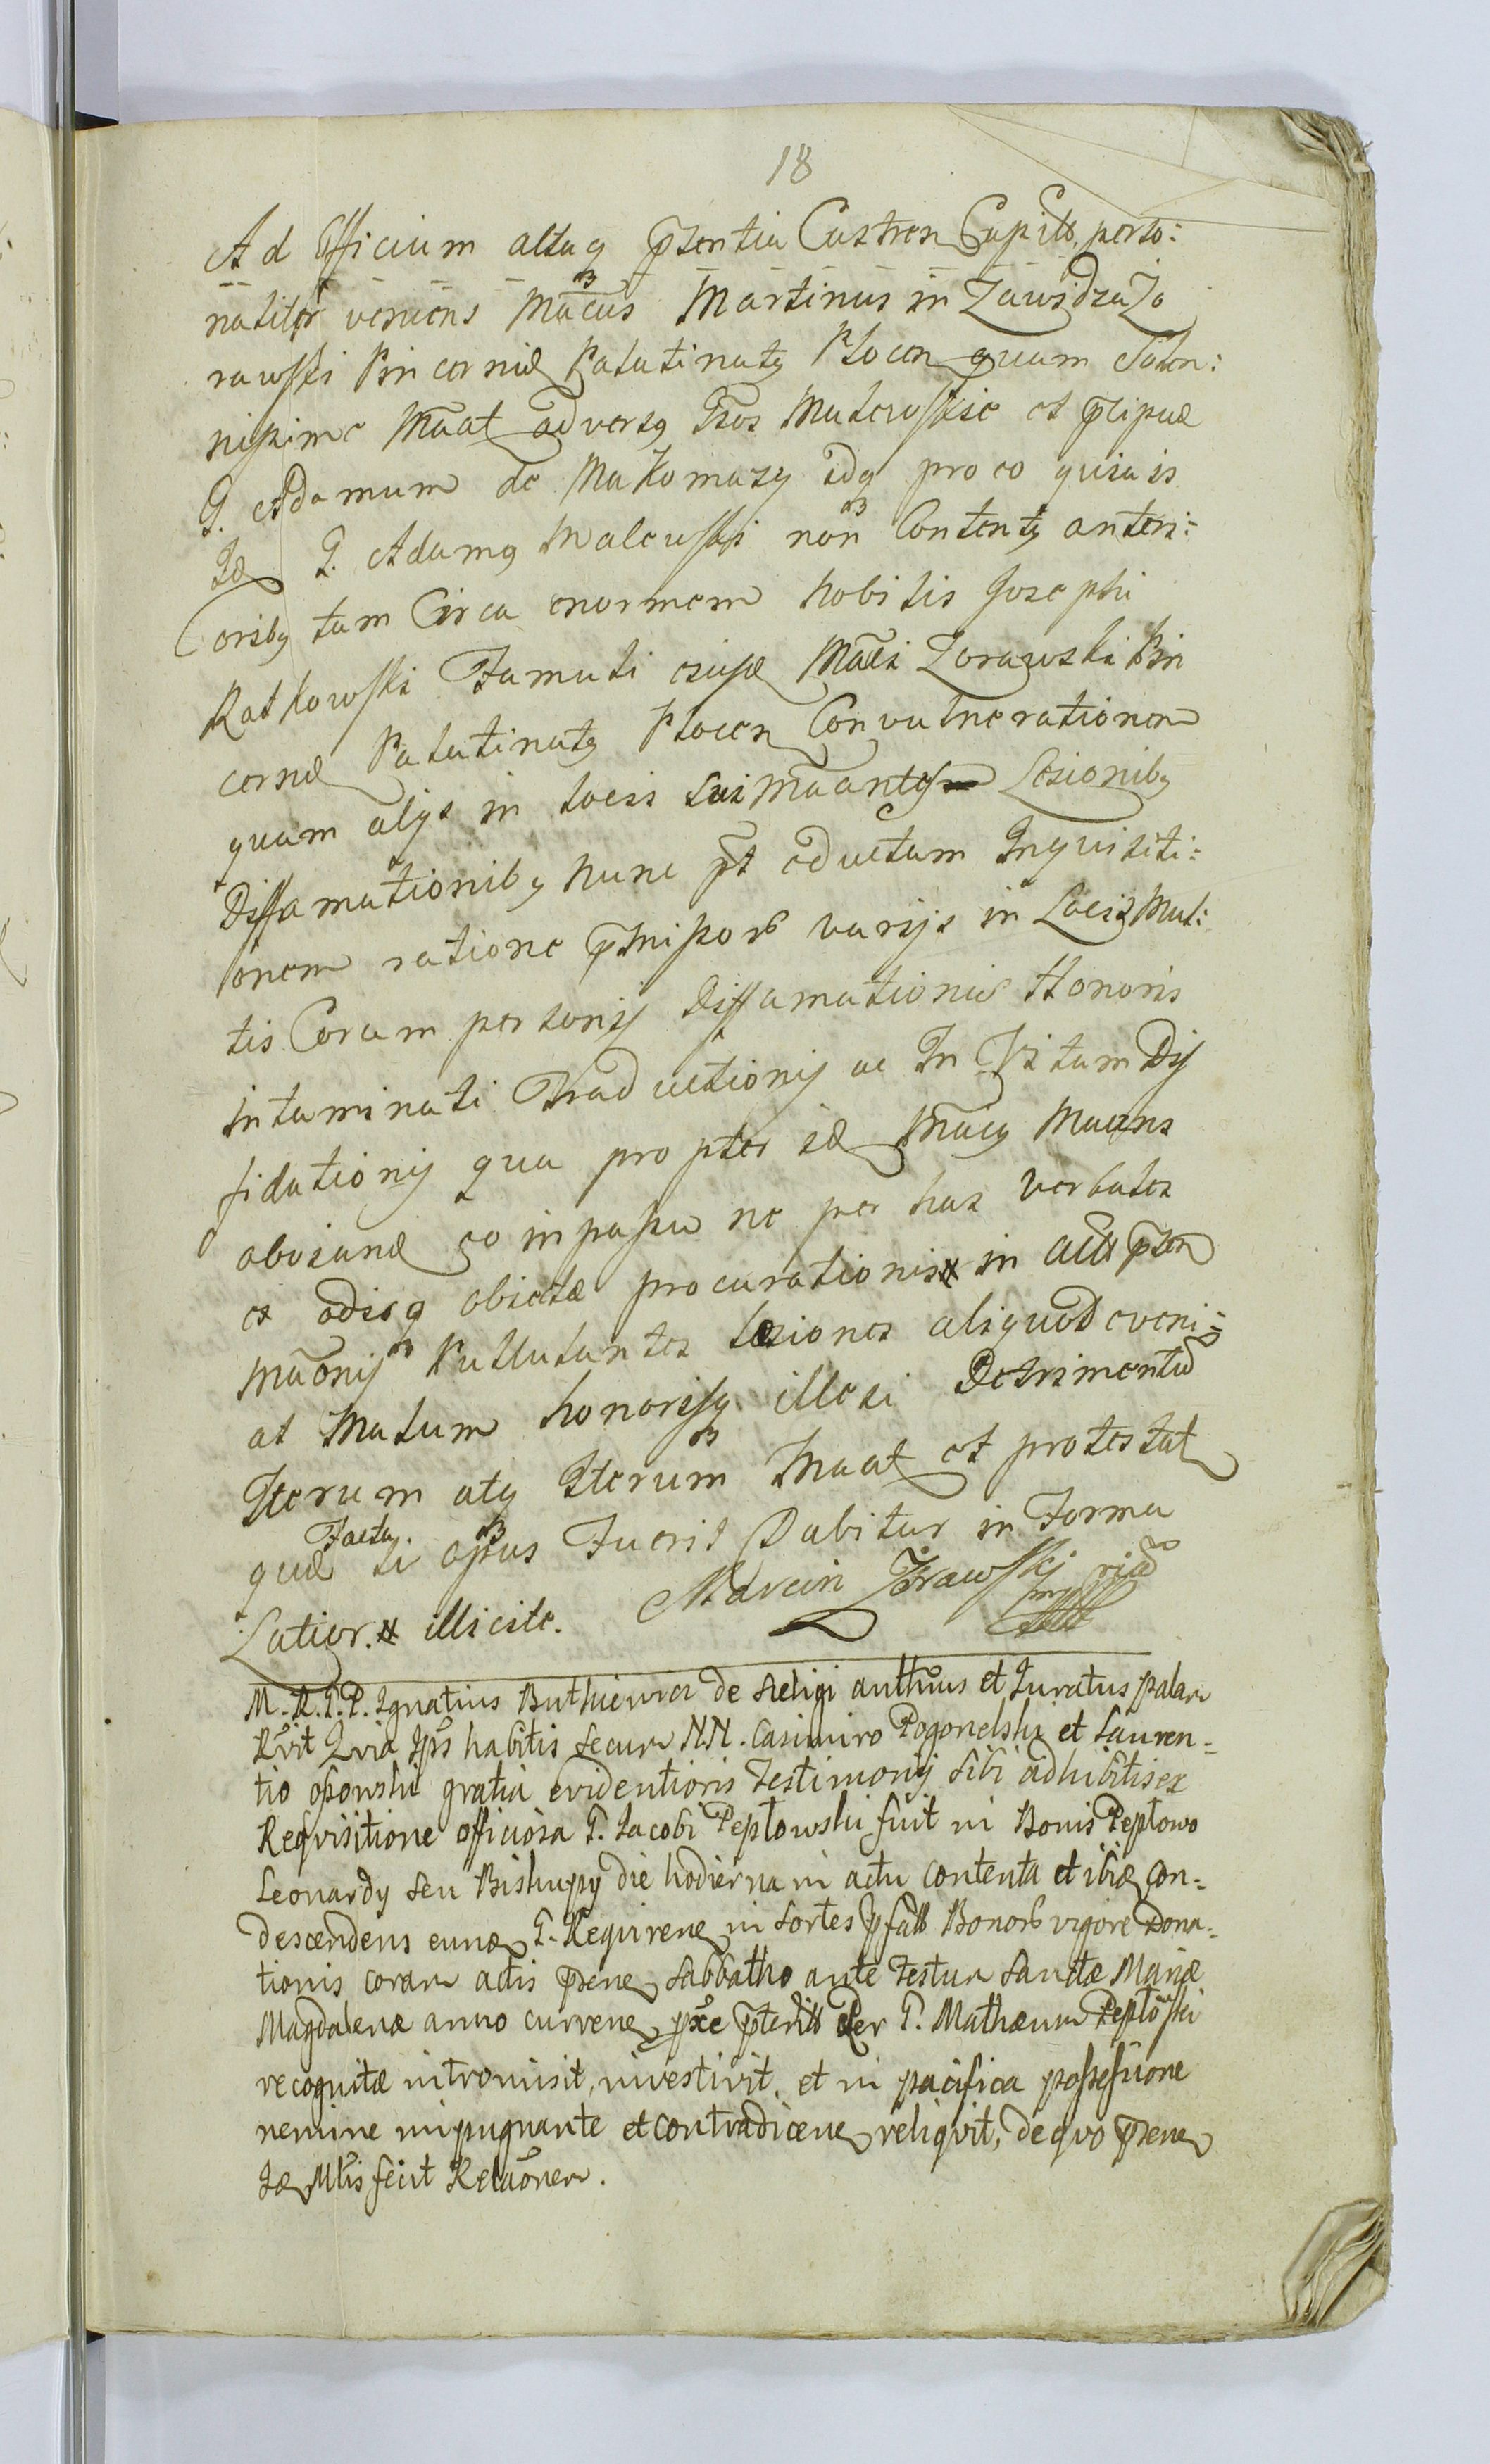 18
Ad Officium actaq ptentia Castren Capitb perso:
naliter veniens Mācus Martinus in Zawidza Zo
rawski Pincerna Palatinatq Plocen quam Solen:
nissime Māat adversq Gsos Malewskie et pcipue
G. Adamum de Makomazy idq pro eo quia is
Id G. Adamq Malewski non Contentq anteri:
oribq tam Circa enormem Nobilis Josephi
Ratkowski Famuli ejusd Māci Zorawski Pin
cernæ Palatinatq Plocen Convulnerationem
quam alijs in locis sui Māantes Lesionibq
Diffamationibq nunc pt eductam Inquisiti:
onem ratione pmissorb varijs in Locis Mul:
tis Coram personis Diffamationis Honoris
intaminati Traductionis ac In Vitam Dif
fidationis qua propter id Mācq Maans
obviand eo inpassu ne per has verbales
et odioq obiectæ procurationis # in actb pten
māonis Pullulantes læsiones aliquod eveni:
at Malum honorisq illesi Detrimentu
Iterum atq Iterum Maat et protestat
Facta
quæ si opus Fuerit Dabitur in Forma
Latior. # illicite. Marcin Żorawski
M. R. G. P. Ignatius Buthiewicz de Seligi authūus et Iuratus palam
Rvit Qvia Ips habitis secum NN. Casimiro Pogorzelski et Lauren=
tio Osowski gratia evidentioris Testimonij sibi adhibitis ex
Reqvisitione officiosa G. Jacobi Peptowski fuit in Bonis Peptowo
Leonardy seu Biskupy die hodierna in actu contenta et ibiq con=
descendens eund G. Requiren in sortes pfatb Bonorb vigore Dona=
tionis coram actis psen Sabbatho ante Festum Sanctæ Mariæ
Magdalenæ anno curren pxe pteritb Per G. Mathæum Peptoski
recognitæ intromisit, investivit, et in pacifica possessione
nemine impugnante et contradicen reliqvit, de qvo psen
Id Mlis fecit Relaōnem.